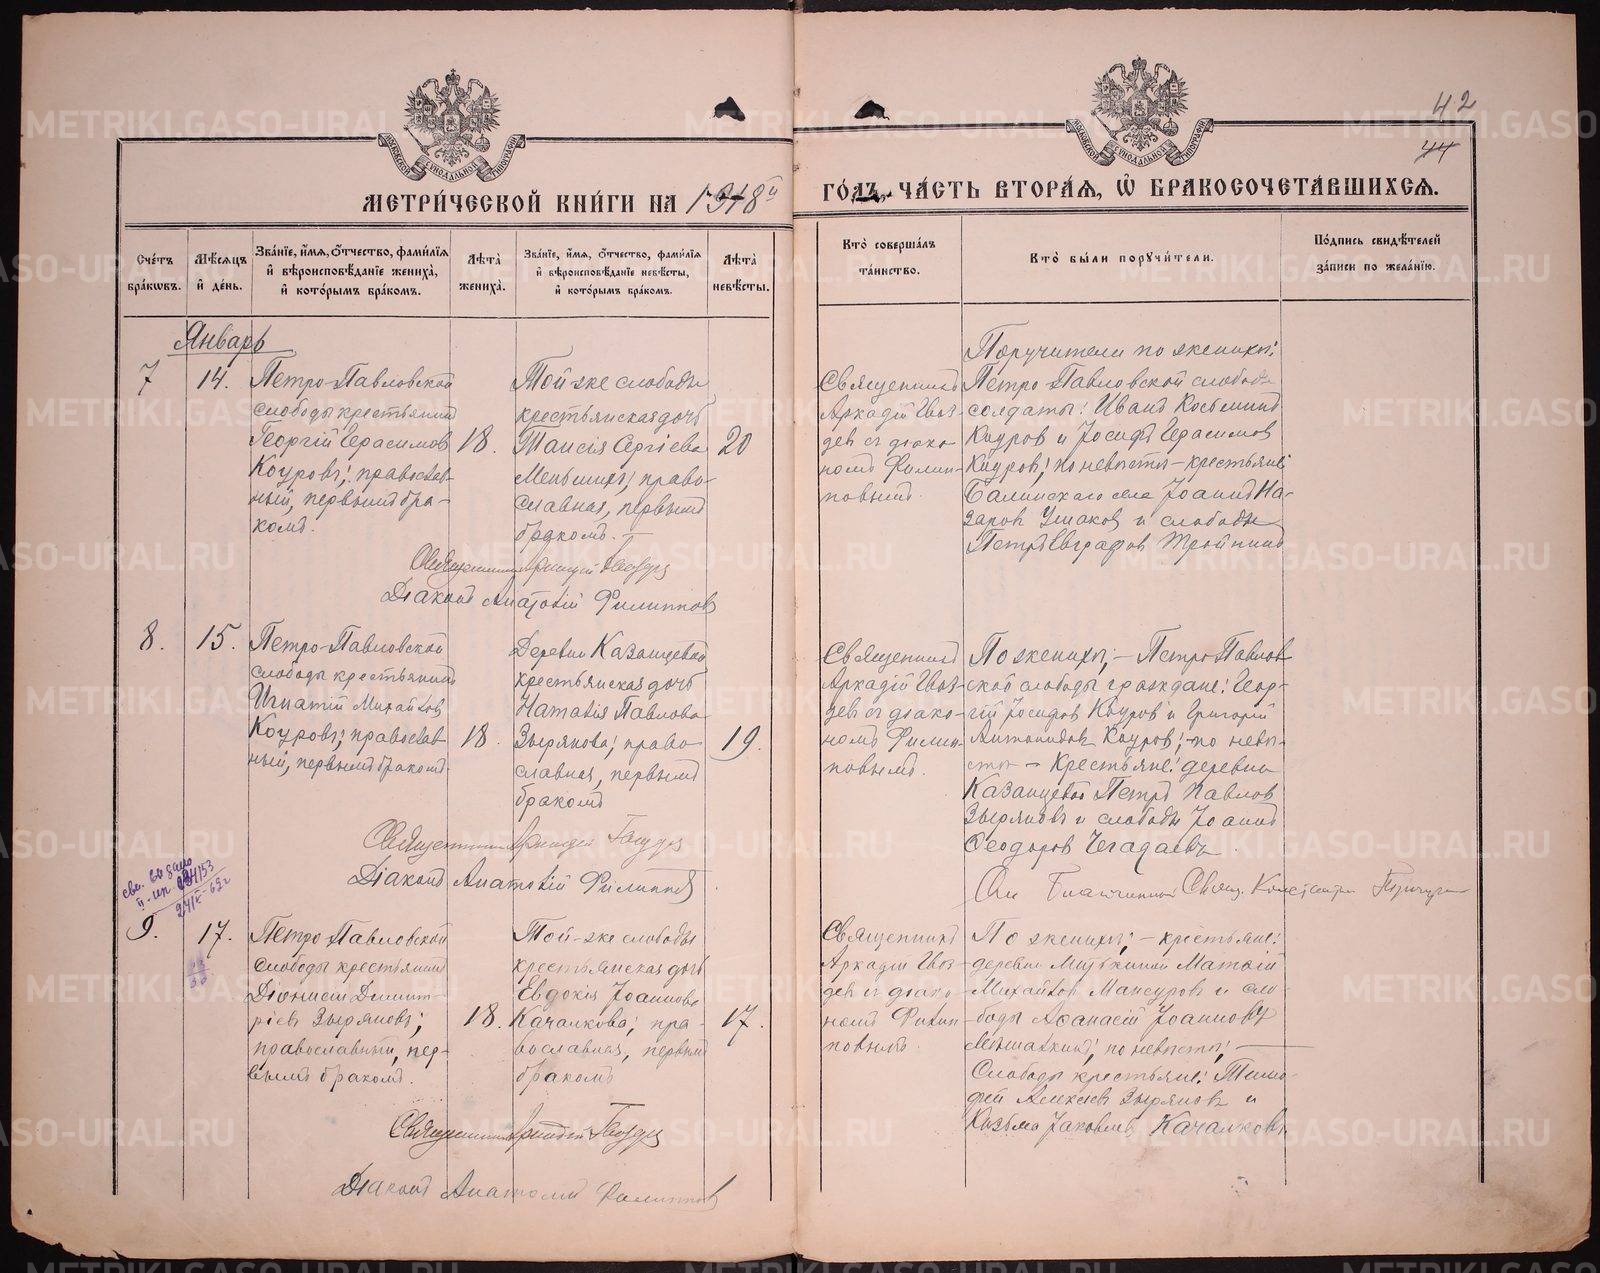 42
44
МОСКОВСКОЙ СѴНОДАЛЬНОЙ ТИПОГРАФІИ
МОСКОВСКОЙ СѴНОДАЛЬНОЙ ТИПОГРАФІИ
МЕТРИ́ЧЕСКОЙ КНИ́ГИ НА 1918й
ГО́ДЪ, ЧА́СТЬ ВТОРА́Я, Ѡ҆ БРАКОСОЧЕТА́ВШИХСЯ.
Сче́тъ бра́кѡвъ.
Мѣ́сяцъ и҆ де́нь.
Зва́нїе, и҆́мя, ѻ҆́тчество, фами́лїя и҆ вѣроисповѣ́данїе жениха̀, и҆ кото́рымъ бра́комъ.
Лѣ́та жениха̀.
Зва́нїе, и҆́мя, ѻ҆́тчество, фами́лїя и҆ вѣроисповѣ́данїе невѣ́сты, и҆ кото́рымъ бра́комъ.
Лѣ́та невѣ́сты.
Кто̀ соверша́лъ та́инство.
Кто̀ бы́ли поручи́тели.
По́дпись свидѣ́телей за́писи по жела́нїю.
Январь
7
14.
Петро-Павловской
слободы крестьянинъ
Георгій Герасимовъ
Коуровъ; православ-
ный, первымъ бра-
комъ.
18.
Той-же слободы
крестьянская дочь
Таисія Сергіева
Меньшихъ; право-
славная, первымъ
бракомъ.
20
Священникъ
Аркадій Гвоз-
девъ съ діако-
номъ Филип-
повымъ.
Поручители по женихѣ:
Петро-Павловской слободы
солдаты: Иванъ Косьминъ
Коуровъ и Іосифъ Герасимовъ
Коуровъ; по невѣстѣ – крестьяне:
села Іоаннъ На-
заровъ Ушаковъ и слободы
Петръ Евграфовъ
Священникъ Аркадій Гвоздевъ
Діаконъ Анатолій Филипповъ
8.
15.
Петро-Павловской
слободы крестьянинъ
Игнатій Михайловъ
Коуровъ; православ-
ный, первымъ бракомъ.
18.
Деревни Казанцевой
крестьянская дочь
Наталія Павлова
Зырянова; право-
славная, первымъ
бракомъ
19.
Священникъ
Аркадій Гвоз-
девъ съ діако-
номъ Филип-
повымъ.
По женихѣ; – Петро-Павлов-
ской слободы граждане: Геор-
гій Іосифовъ Коуровъ и Григорій
Коуровъ; – по невѣ-
стѣ – крестьяне: деревни
Казанцевой Петръ Павловъ
Зыряновъ и слободы Іоаннъ
Ѳеодоровъ
Священникъ Аркадій Гвоздевъ
Діаконъ Анатолій Филипповъ.
Свящ. Константинъ
9.
17.
Петро-Павловской
слободы крестьянинъ
Діонисій Димит-
ріевъ Зыряновъ;
православный, пер-
вымъ бракомъ.
18.
Той-же слободы
крестьянская дочь
Евдокія Іоаннова
Качалкова; пра-
вославная, первымъ
бракомъ
17.
Священникъ
Аркадій Гвоз-
девъ съ діако-
номъ Филип-
повымъ.
По женихѣ; – крестьяне:
деревни Митькиной Матѳій
Михайловъ Мансуровъ и сло-
боды Аѳанасій Іоанновъ
по невѣстѣ; –
Слободы крестьяне: Тимо-
ѳей Алексѣевъ Зыряновъ и
Козьма Іаковлевъ Качалковъ.
Священникъ Аркадій Гвоздевъ
Діаконъ Анатолій Филипповъ